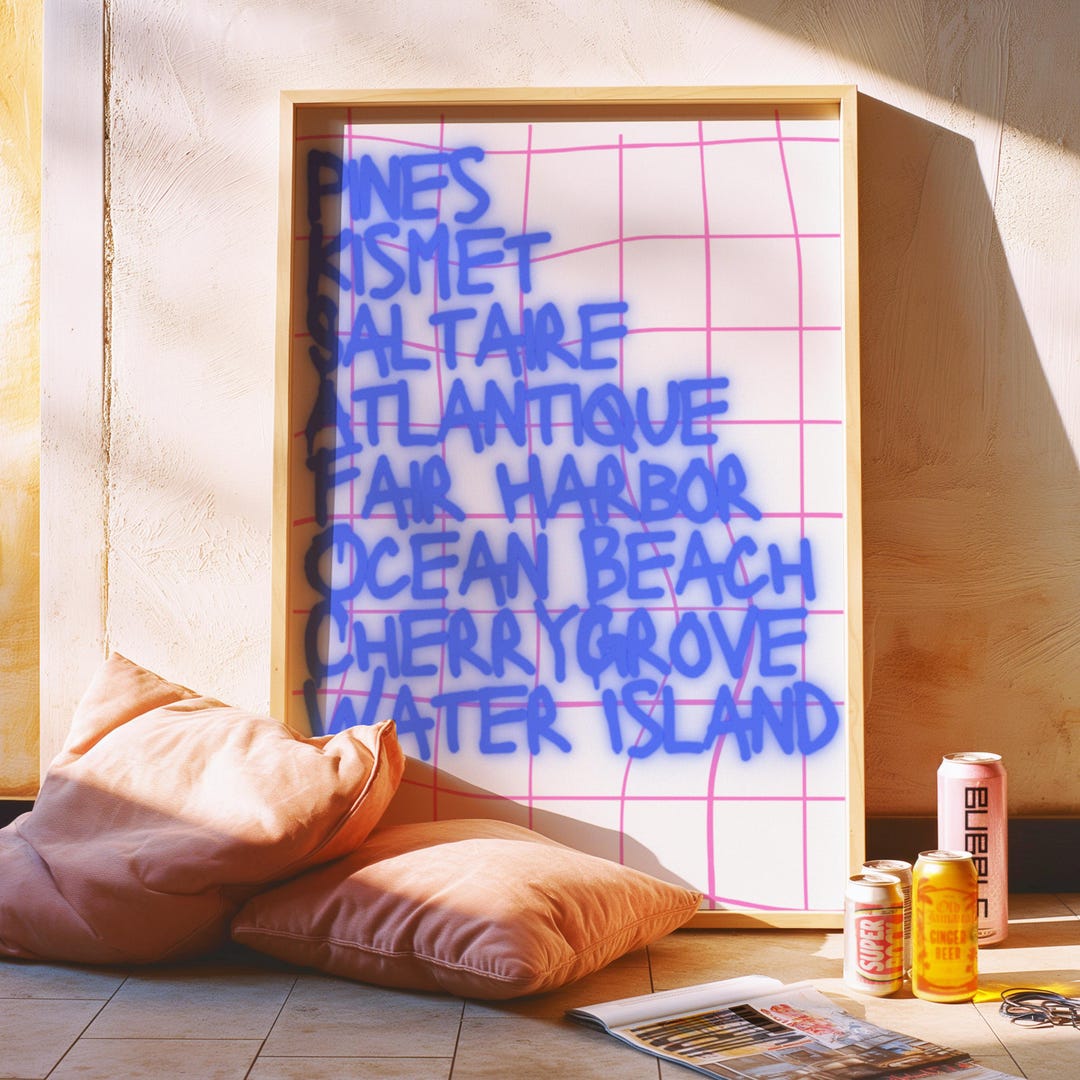 PINES
KISMET
SALTAIRE
ATLANTIQUE
FAIR HARBOR
OCEAN BEACH
CHERRY GROVE
WATER ISLAND
BUBBLE
SUPER
GINGER
BEER